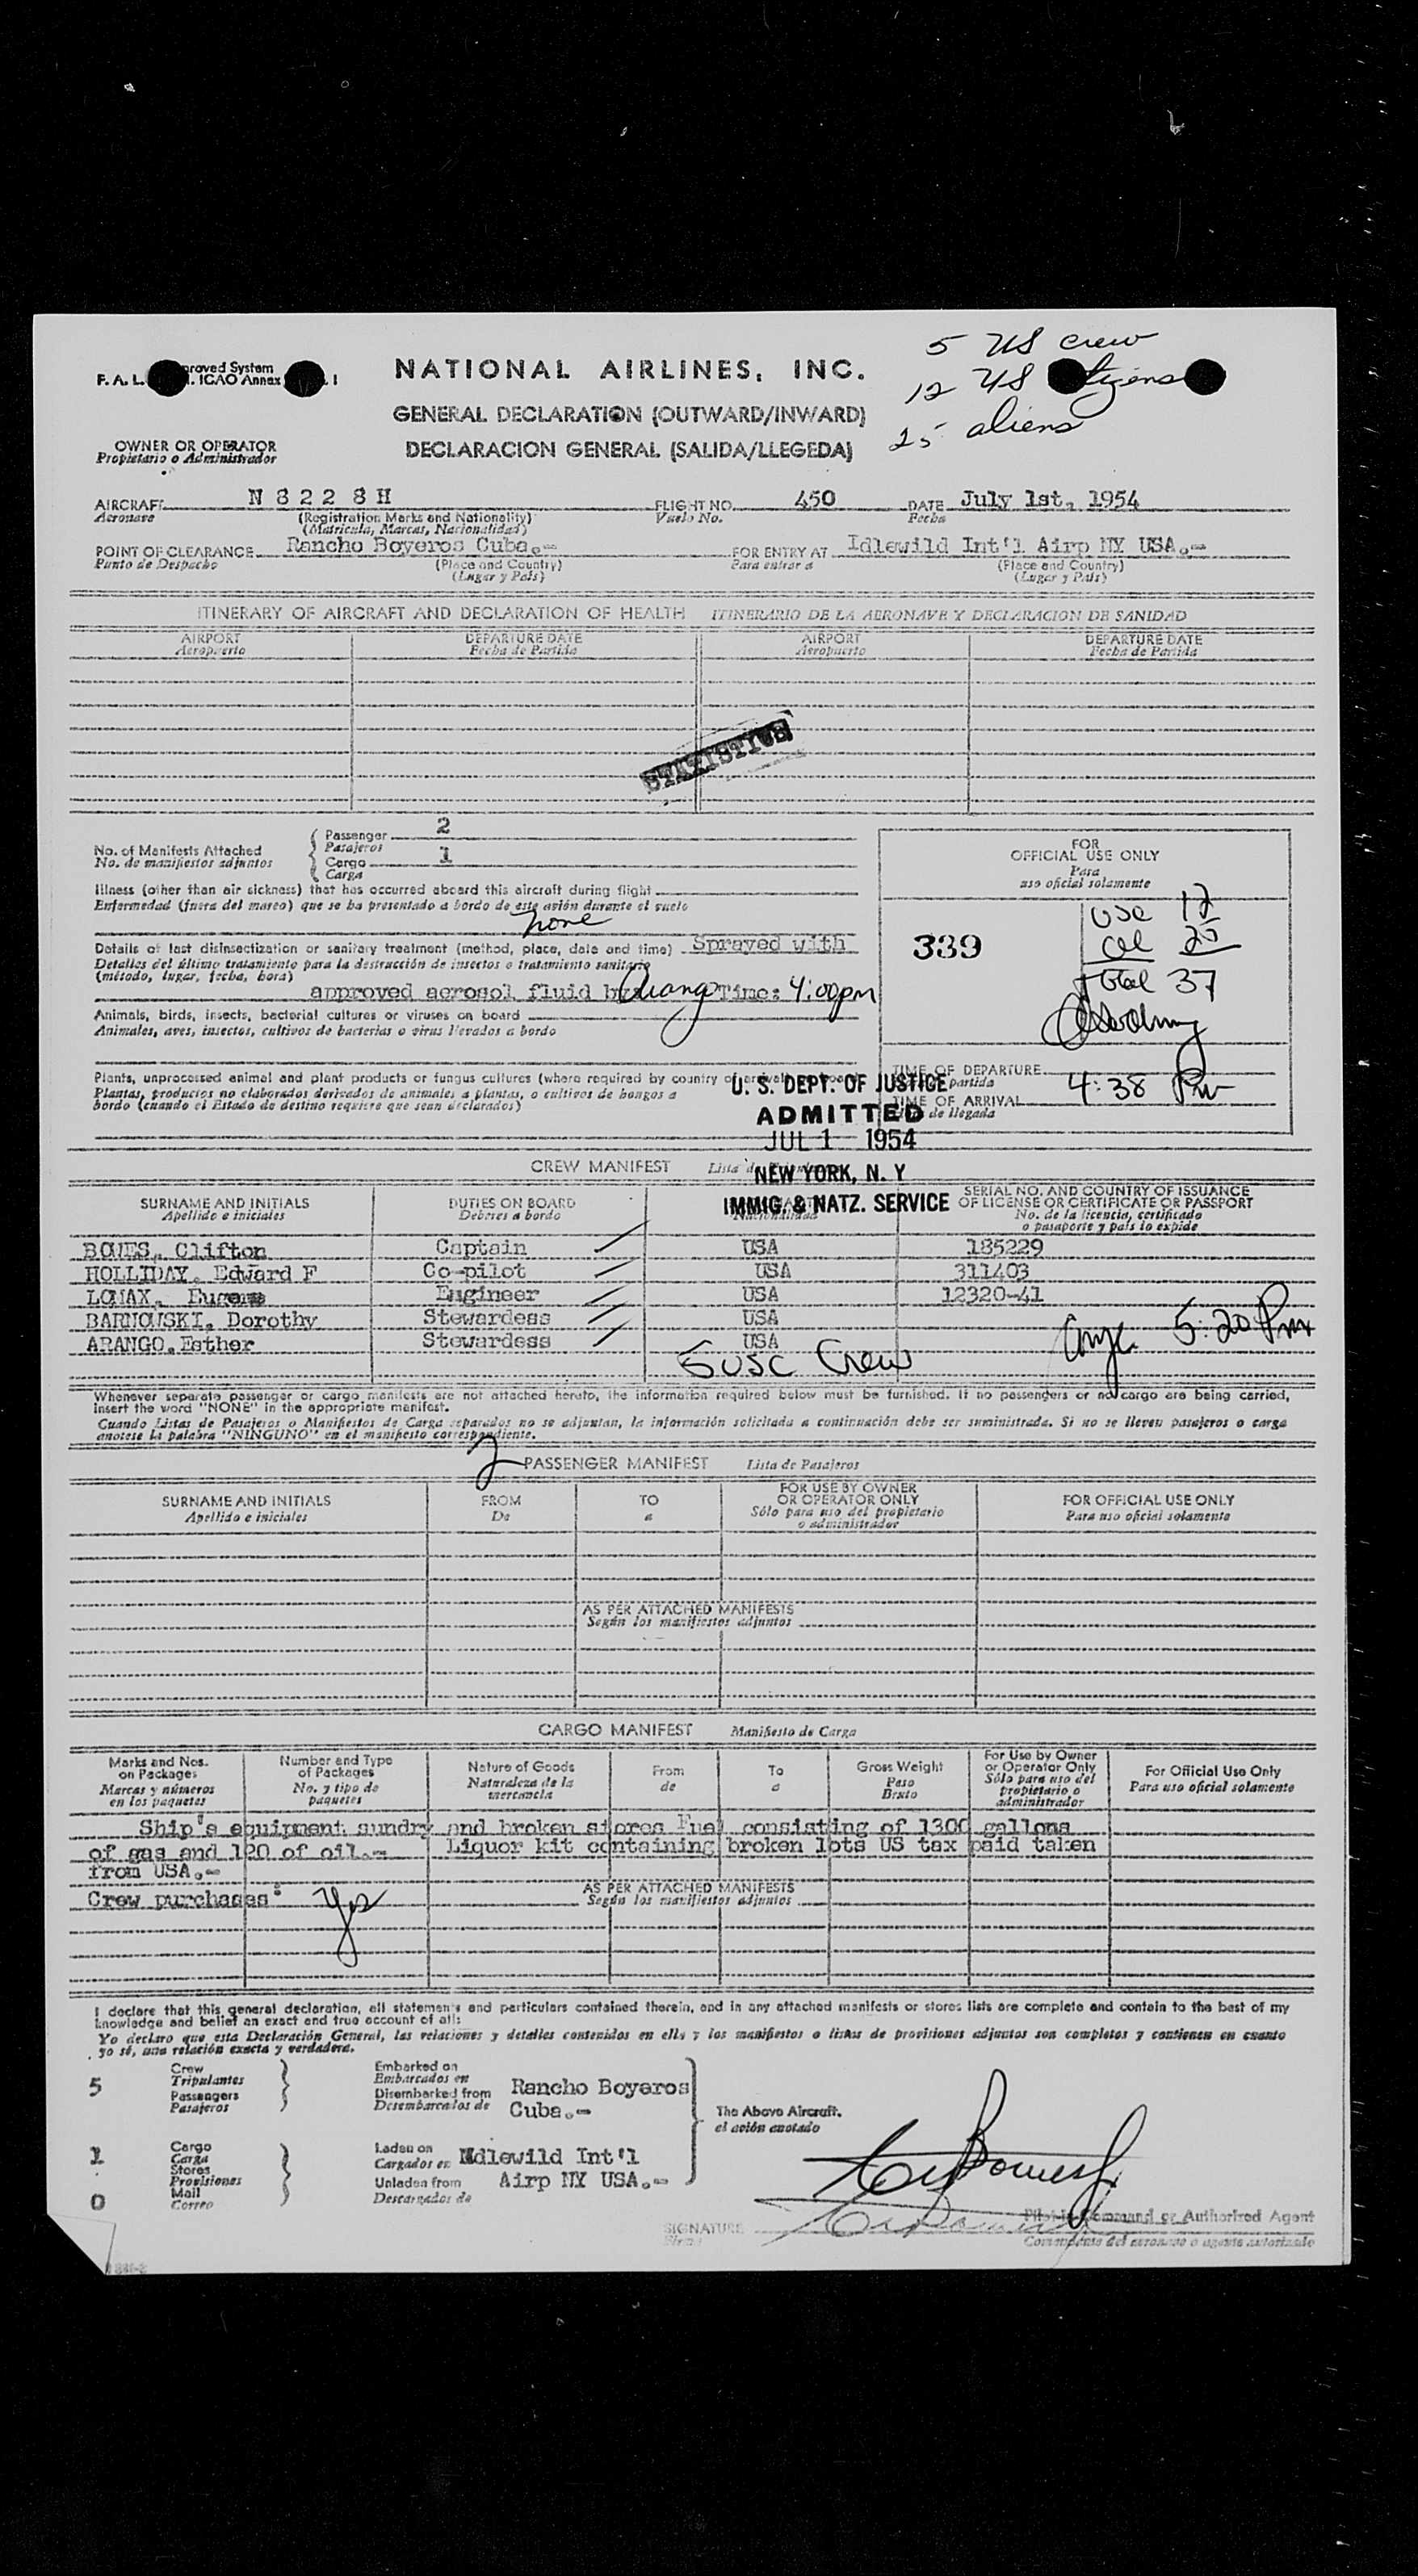 5 US crew
F. A. L. proved System
ICAO Annex I
NATIONAL AIRLINES, INC.
12 US tizens
GENERAL DECLARATION (OUTWARD/INWARD)
25 aliens
OWNER OR OPERATOR
DECLARACION GENERAL (SALIDA/LLEGEDA)
Propietario o Administrador
AIRCRAFT N 8 2 2 8 H FLIGHT NO. 450 DATE July 1st, 1954
Aeronave (Registration Marks and Nationality) Vuelo No. Fecha
(Matricula, Marcas, Nacionalidad)
POINT OF CLEARANCE Rancho Boyeros Cuba.- FOR ENTRY AT Idlewild Int'l Airp NY USA.-
Punto de Despacho (Place and Country) Para entrar a (Place and Country)
(Lugar y País) (Lugar y País)
ITINERARY OF AIRCRAFT AND DECLARATION OF HEALTH ITINERARIO DE LA AERONAVE Y DECLARACION DE SANIDAD
AIRPORT DEPARTURE DATE AIRPORT DEPARTURE DATE
Aeropuerto Fecha de Partida Aeropuerto Fecha de Partida
STATISTICS
No. of Manifests Attached Passenger 2
No. de manifiestos adjuntos Pasajeros
Cargo 1
Carga
FOR
OFFICIAL USE ONLY
Para
uso oficial solamente
Illness (other than air sickness) that has occurred aboard this aircraft during flight
Enfermedad (fuera del mareo) que se ha presentado a bordo de este avión durante el vuelo
none
USC 12
339
Total 37
Details of last disinsectization or sanitary treatment (method, place, date and time) Sprayed with
Detalles del último tratamiento para la destrucción de insectos o tratamiento sanitario
(método, lugar, fecha, hora)
approved aerosol fluid by Arango Time: 4:00pm
Animals, birds, insects, bacterial cultures or viruses on board
Animales, aves, insectos, cultivos de bacterias o virus llevados a bordo
Plants, unprocessed animal and plant products or fungus cultures (where required by country of arrival)
Plantas, productos no elaborados derivados de animales a plantas, o cultivos de hongos a
bordo (cuando el Estado de destino requiere que sean declarados)
TIME OF DEPARTURE
partida 4:38 Pm
TIME OF ARRIVAL
de llegada
U. S. DEPT. OF JUSTICE
ADMITTED
JUL 1 1954
NEW YORK, N. Y
IMMIG. & NATZ. SERVICE
CREW MANIFEST
SURNAME AND INITIALS DUTIES ON BOARD SERIAL NO. AND COUNTRY OF ISSUANCE
Apellido e iniciales Deberes a bordo Nacionalidad OF LICENSE OR CERTIFICATE OR PASSPORT
No. de la licencia, certificado
o pasaporte y país lo expide
BOWES, Clifton Captain USA 185229
HOLLIDAY, Edward F Co-pilot USA 311403
LOMAX, Eugene Engineer USA 12320-41
BARNOWSKI, Dorothy Stewardess USA
ARANGO, Esther Stewardess USA
5:20 Pm
5 USC Crew
Whenever separate passenger or cargo manifests are not attached hereto, the information required below must be furnished. If no passengers or no cargo are being carried,
insert the word "NONE" in the appropriate manifest.
Cuando Listas de Pasajeros o Manifiestos de Carga separados no se adjuntan, la información solicitada a continuación debe ser suministrada. Si no se lleven pasajeros o carga
anotese la palabra "NINGUNO" en el manifiesto correspondiente.
2 PASSENGER MANIFEST Lista de Pasajeros
SURNAME AND INITIALS FROM TO FOR USE BY OWNER FOR OFFICIAL USE ONLY
Apellido e iniciales De a OR OPERATOR ONLY Para uso oficial solamente
Sólo para uso del propietario
o administrador
AS PER ATTACHED MANIFESTS
Según los manifiestos adjuntos
CARGO MANIFEST Manifiesto de Carga
Marks and Nos. on Packages Number and Type of Packages Nature of Goods From To Gross Weight For Use by Owner or Operator Only For Official Use Only
Marcas y números en los paquetes No. y tipo de paquetes Naturaleza de la mercancía de a Peso Bruto Sólo para uso del propietario o administrador Para uso oficial solamente
Ship's equipment sundry and broken stores Fuel consisting of 1300 gallons
of gas and 120 of oil.- Liquor kit containing broken lots US tax paid taken
from USA.-
AS PER ATTACHED MANIFESTS
Crew purchases: Yes
Según los manifiestos adjuntos
I declare that this general declaration, all statements and particulars contained therein, and in any attached manifests or stores lists are complete and contain to the best of my
knowledge and belief an exact and true account of all:
Yo declaro que esta Declaración General, las relaciones y detalles contenidos en ella y los manifiestos o listas de provisiones adjuntos son completos y contienen en cuanto
yo sé, una relación exacta y verdadera.
5 Crew
Tripulantes
Passengers
Pasajeros
Embarked on
Embarcados en
Disembarked from
Desembarcados de
Rancho Boyeros
Cuba.-
The Above Aircraft.
el avión anotado
1 Cargo
Carga
Stores
Provisiones
0 Mail
Correo
Laden on
Cargados en
Unladen from
Descargados de
Idlewild Int'l
Airp NY USA.-
Pilot in Command or Authorized Agent
SIGNATURE
Firma
Comandante del aeronave o agente autorizado